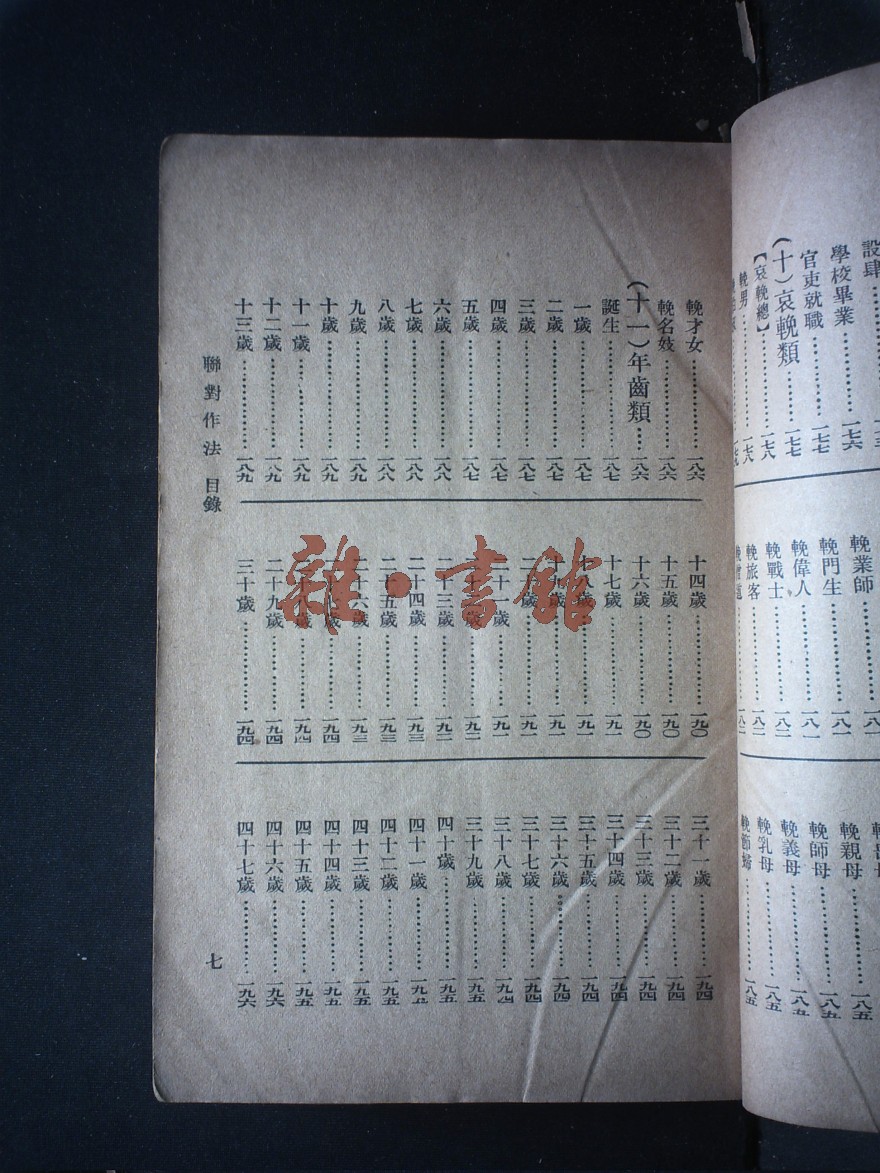 設肆
學校畢業……一七六
官吏就職……一七七
(十)哀輓類……一七七
【哀輓總】……一七八
輓男……一七八
輓業師……一八一
輓門生……一八一
輓偉人……一八一
輓戰士……一八二
輓旅客……一八二
輓親母……一八五
輓師母……一八五
輓義母……一八五
輓乳母……一八五
輓節婦……一八五
輓才女……一八六
輓名妓……一八六
(十一)年齒類……一八六
誕生……一八七
一歲……一八七
二歲……一八七
三歲……一八七
四歲……一八七
五歲……一八七
六歲……一八八
七歲……一八八
八歲……一八八
九歲……一八九
十歲……一八九
十一歲……一八九
十二歲……一八九
十三歲……一八九
十四歲……一九〇
十五歲……一九〇
十六歲……一九〇
十七歲……一九一
十八歲……一九一
十九歲……一九一
歲……一九二
歲……一九二
歲……一九二
二十三歲……一九二
二十四歲……一九三
二十五歲……一九三
二十六歲……一九三
十七歲……一九四
二十八歲……一九四
二十九歲……一九四
三十歲……一九四
三十一歲……一九四
三十二歲……一九四
三十三歲……一九四
三十四歲……一九四
三十五歲……一九四
三十六歲……一九四
三十七歲……一九四
三十八歲……一九四
三十九歲……一九五
四十歲……一九五
四十一歲……一九五
四十二歲……一九五
四十三歲……一九五
四十四歲……一九五
四十五歲……一九五
四十六歲……一九六
四十七歲……一九六
聯對作法 目錄
七
雜·書館